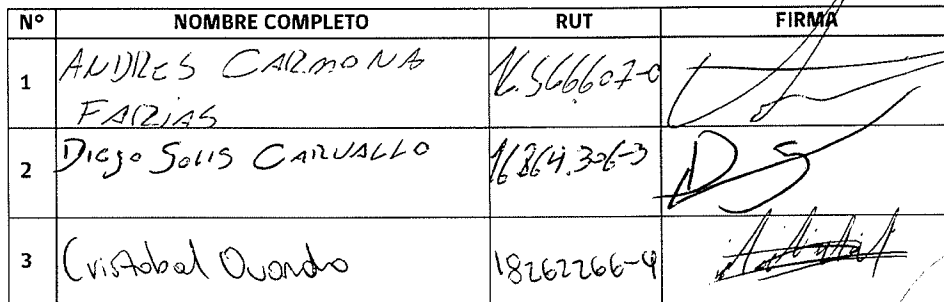 N° NOMBRE COMPLETO RUT FIRMA
1 ANDRES CARMONA 16.566607-0
FARIAS
2 Diego Solis CARVALLO 16864.306-3 DS
3 Cristobal Ovando 18262266-4